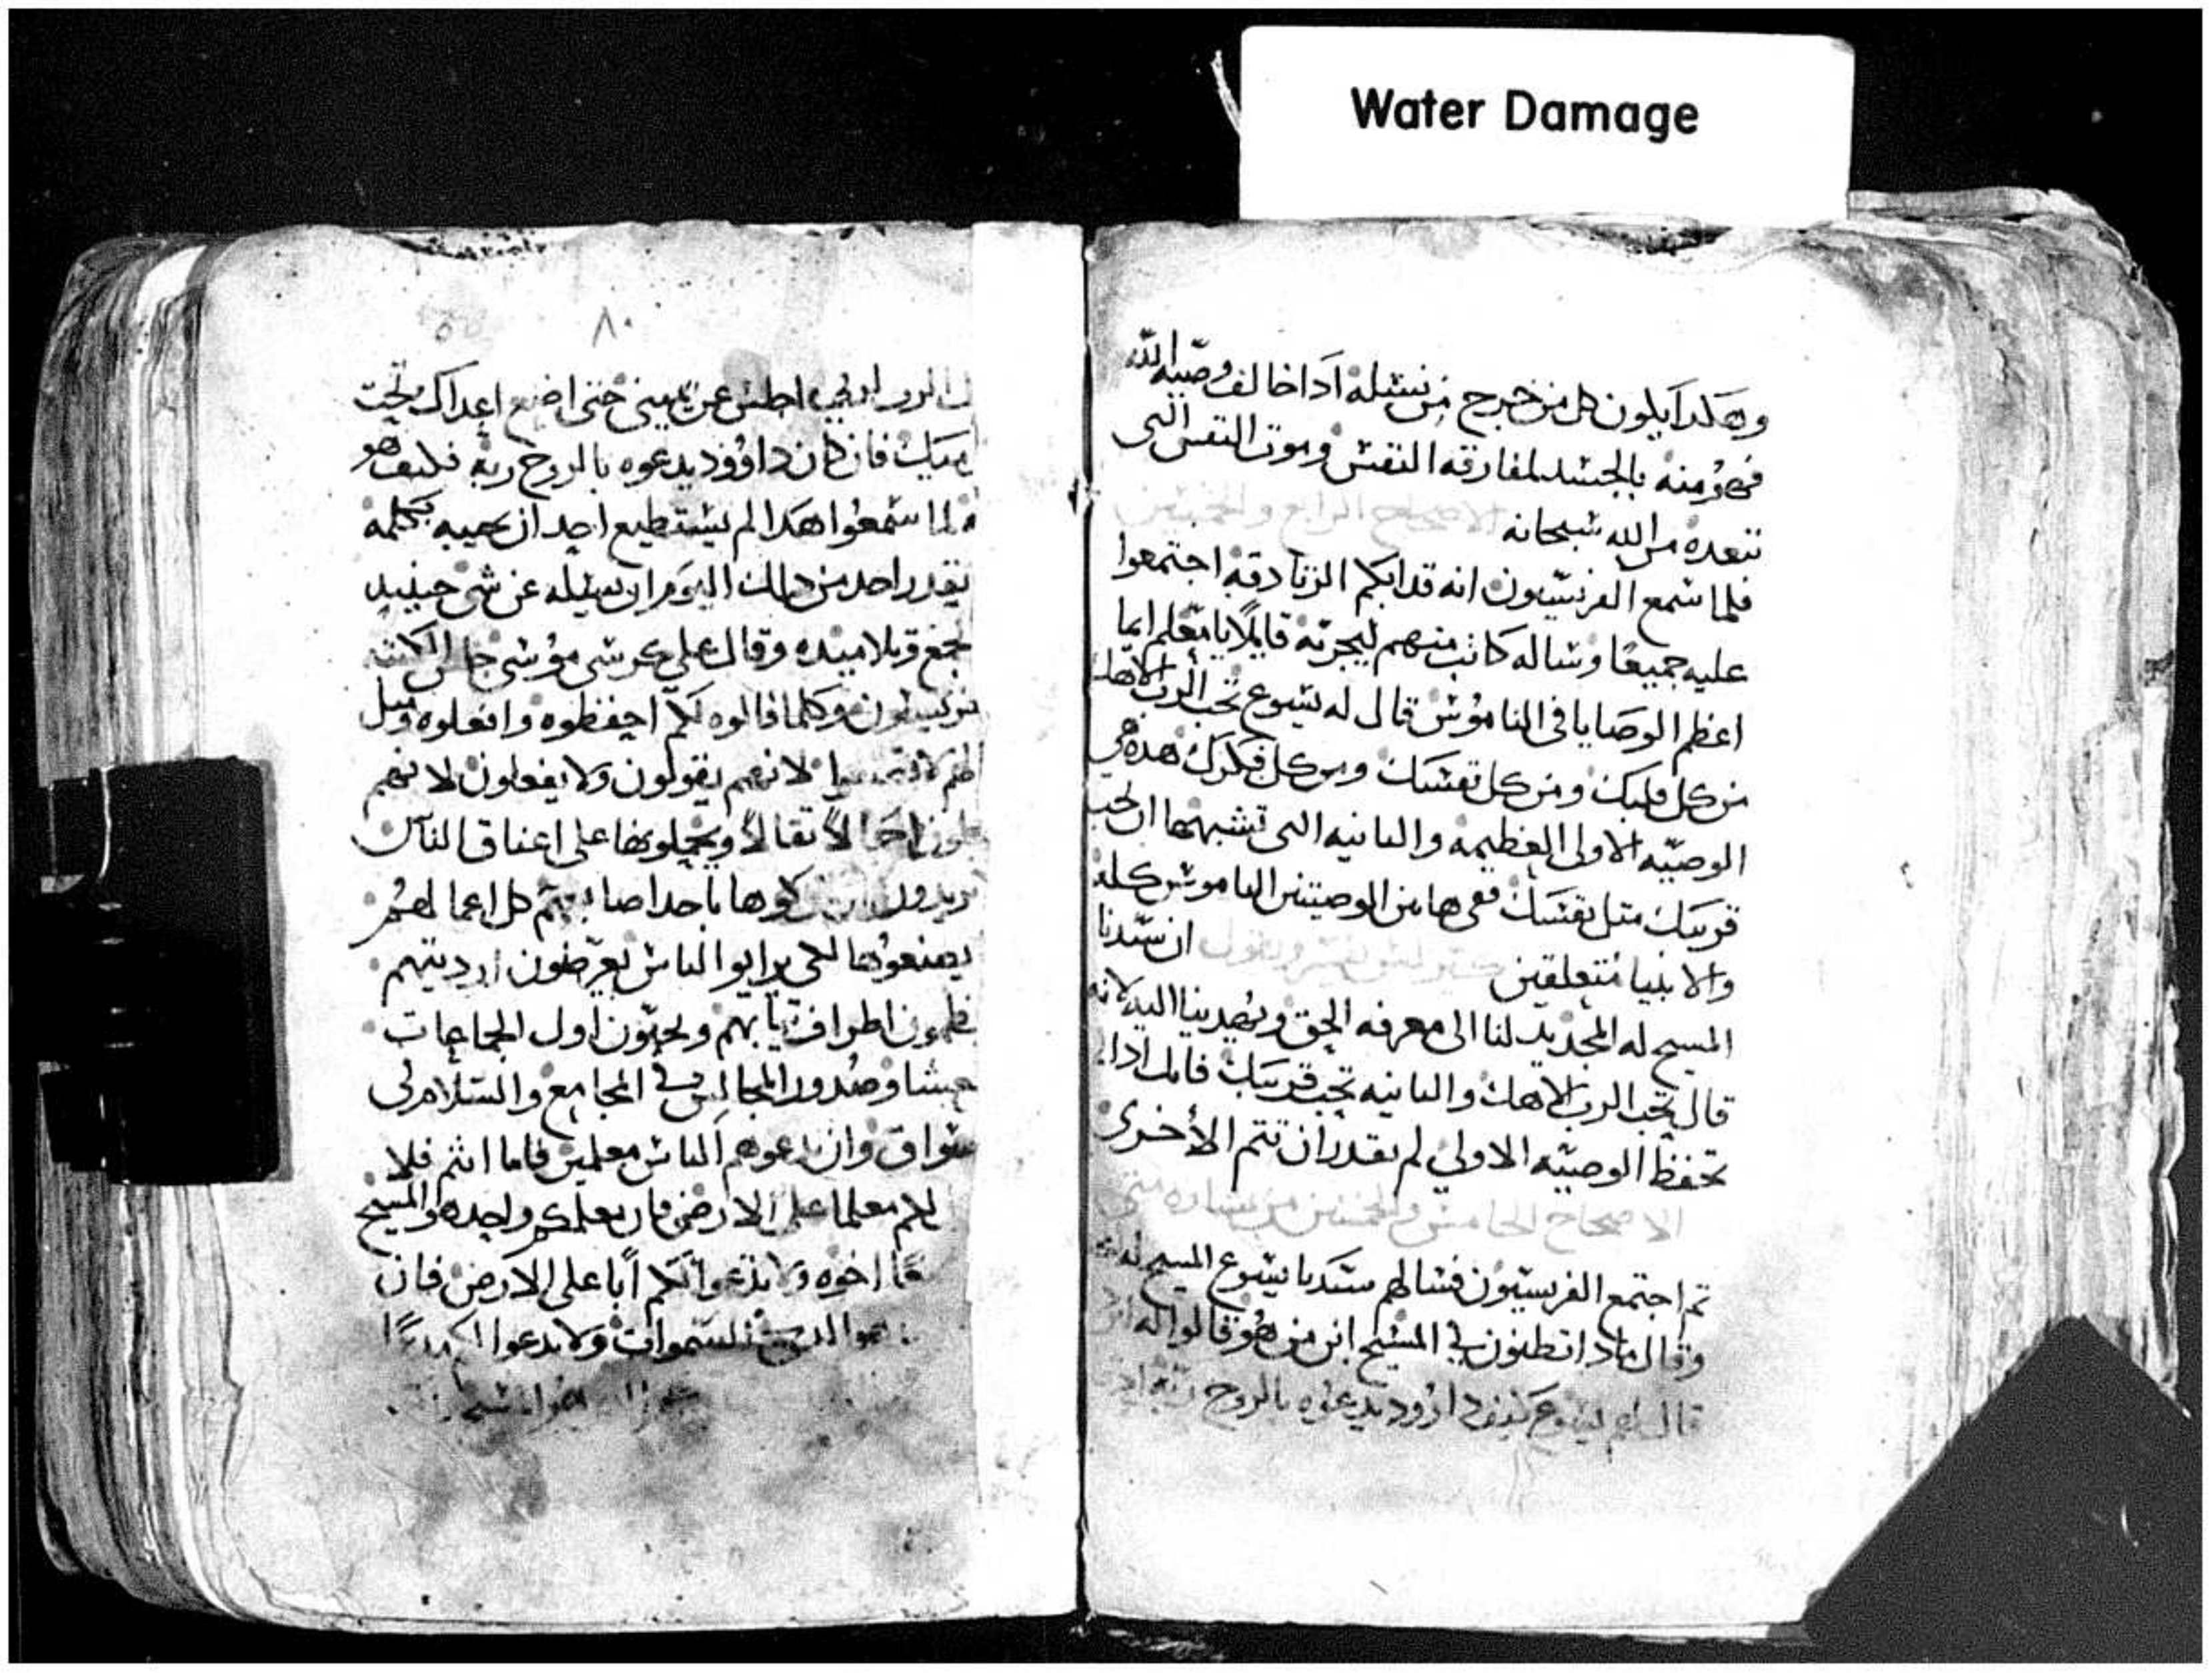 Water Damage
وهكدا يكون كل من خرج من نسله ادا خالف وصيه الله
فهو منه بالجسد لمفارقه النفس وموت النفس التى
تبعده من الله سبحانه الاصحاح الرابع والخمسين
فلما سمع الفريسيون انه قد ابكم الزنادقه اجتمعوا
عليه جميعًا وساله كاتب منهم ليجربه قايلًا يا معلم ايما
اعظم الوصايا فى الناموس قال له يسوع تحب الرب الاهك
من كل قلبك ومن كل نفسك ومن كل فكرك هده هي
الوصيه الاولى العظيمه والتانيه التى تشبهها ان تحب
قريبك متل نفسك ففى هاتين الوصيتين الناموس كله
والانبيا متعلقين يفسر ويقول ان سيدنا
المسيح له المجد يدلنا الى معرفه الحق ويهدينا اليه لانه
قال تحب الرب الاهك والتانيه تحب قريبك فانك ادا لم
تحفظ الوصيه الاولي لم تقدر ان تتم الأخرى
الاصحاح الخامس والخمسين من بشاره متى
تم اجتمع الفريسيون فسالهم سيدنا يسوع المسيح
وقال مادا تظنون في المسيح ابن من هو قالوا له
قال لهم يسوع كيف داوود يدعوه بالروح ربه
٨٠
الرب لربي اجلس عن يميني حتى اضع اعداك تحت
فان كان داوود يدعوه بالروح ربه فكيف هو
لما سمعوا هدا لم يستطيع احد ان يجيبه بكلمه
يقدر احد من دلك اليوم ان يسله عن شي حينيد
جمع وتلاميده وقال على كرسى موسى جلس الكتبه
وكلما قالوه لكم احفظوه وافعلوه
لانهم يقولون ولا يفعلون لانهم
تقالًا ويحملوها على اعناق الناس
يريدون يحركوها باحد اصابعهم كل اعمالهم
يصنعوها لكى يرايوا الناس يعرضون ارديتهم
اطراف تيابهم ويحبون اول الجماعات
وصدور المجالس في المجامع والسلام في
وان يدعوهم الناس معلمين فاما انتم فلا
لكم معلما على الارض فان معلمكم واحد هو المسيح
اخوه ولا تدعوا لكم أبًا على الارض فان
السموات ولا تدعوا